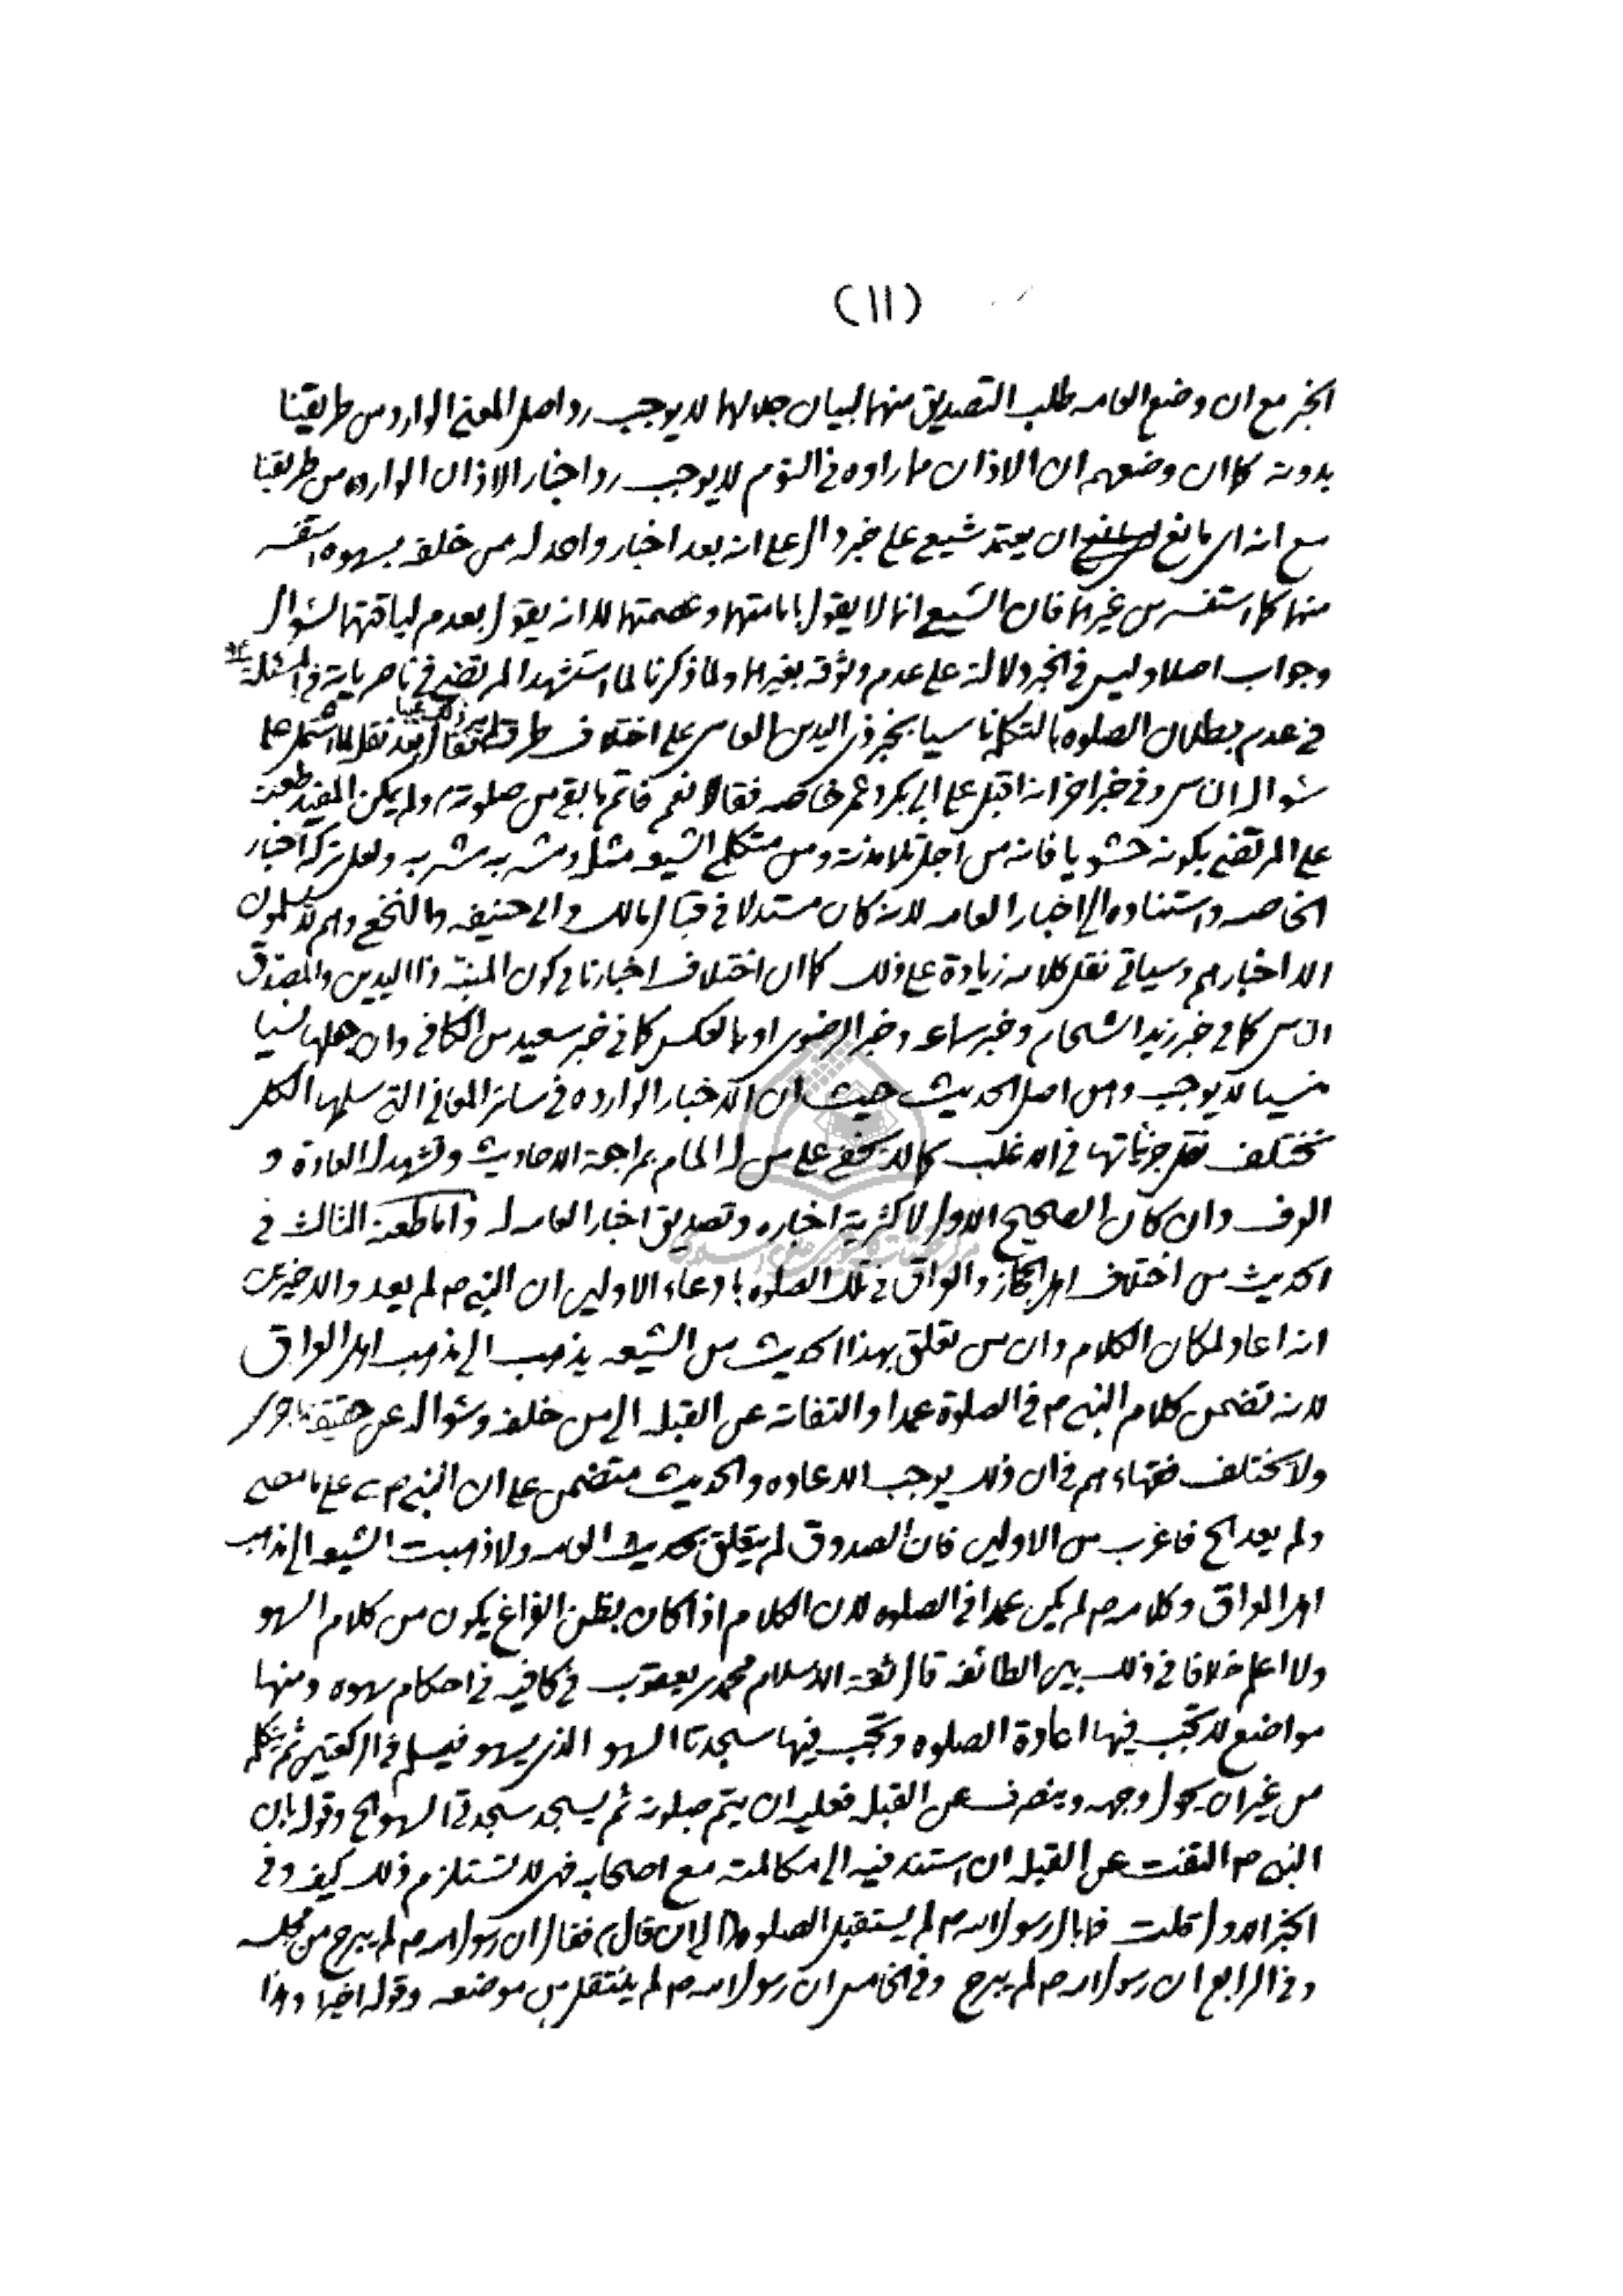 (١١)
الخبر مع ان وضع العامه طلب التصديق منهما لبيان جلالهما لا يوجب رد اصل المعنى الوارد من طريقنا
بدونه كما ان وضعهم ان الاذان مما راوه في النوم لا يوجب رد اخبار الاذان الوارده من طريقنا
مع انه اى مانع ان يعتمد شيعي على خبر دال على انه بعد اخبار واحد له من خلفه بسهوه استفسر
منهما كما استفسر من غيرهما فان الشيعي انما لا يقول بامامتهما وعصمتهما لا انه يقول بعدم لياقتهما لسؤال
وجواب اصلا وليس في الخبر دلالة على عدم وثوقه بغيرهما ولما ذكرنا لما استشهد المرتضى في ناصرياته في
في عدم بطلان الصلوه بالتكلم ناسيا بخبر ذى اليدين العامى على اختلاف طرقه فقال بعد نقل ما اشتمل على
سؤال الناس وفي خبر اخر انه اقبل على ابى بكر وعمر خاصه فقالا نعم فاتم ما بقى من صلوته، ولم يكن المفيد
على المرتضى بكونه حشويا فانه من اجل تلامذته ومن متكلمى الشيعه مثله ومشربه مشربه ولعل تركه اخبار
الخاصه واستناده الى اخبار العامه لانه كان مستدلا في قبال مالك وابى حنيفه والنخعى وهم لا يسلمون
الا اخبارهم وسياتى نقل كلامه زيادة على ذلك كما ان اختلاف اخبارنا في كون المنبه ذا اليدين والمصدق
الناس كما في خبر زيد الشحام وخبر سماعه وخبر الرضوى او بالعكس كما في خبر سعيد من الكافى وان جعلها نسيا
منسيا لا يوجب وهن اصل الحديث حيث ان الاخبار الوارده في سائر المعانى التى سلمها الكل
تختلف نقل جزئياتها في الاغلب كما لا يخفى على من له المام بمراجعة الاحاديث وتشهد له العادة و
العرف وان كان الصحيح الاول لاكثرية اخباره وتصديق اخبار العامه له واما طعنه الثالث في
الحديث من اختلاف اهل الحجاز والعراق في تلك الصلوه بادعاء الاولين ان النبي ص لم يعد والاخيرين
انه اعاد لمكان الكلام وان من تعلق بهذا الحديث من الشيعه يذهب الى مذهب اهل العراق
لانه تضمن كلام النبي ص في الصلوة عمدا والتفاته عن القبله الى من خلفه وسؤاله عن حقيقة ما جرى
ولا يختلف فقهاءهم في ان ذلك يوجب الاعاده والحديث متضمن على ان النبي ص بنى على ما مضى
ولم يعد الخ فاغرب من الاولين فان الصدوق لم يتعلق بحديث العامه ولا ذهبت الشيعه الى مذهب
اهل العراق وكلامه ص لم يكن عمدا في الصلوه لان الكلام اذا كان بظن الفراغ يكون من كلام السهو
ولا اعلم خلافا في ذلك بين الطائفه قال ثقة الاسلام محمد بن يعقوب في كافيه في احكام سهوه ومنها
مواضع لا تجب فيها اعادة الصلوه وتجب فيها سجدتا السهو الذى يسهو فيسلم في الركعتين ثم يتكلم
من غير ان يحول وجهه وينصرف عن القبله فعليه ان يتم صلوته ثم يسجد سجدتى السهو الخ وقوله بان
النبي ص التفت عن القبله ان استند فيه الى مكالمته مع اصحابه فهى لا تستلزم ذلك كيف وفي
الخبر الاول قلت فما بال رسول الله ص لم يستقبل الصلوه (الى ان قال) فقال ان رسول الله ص لم يبرح من مجلسه
وفي الرابع ان رسول الله ص لم يبرح وفي الخامس ان رسول الله ص لم ينتقل من موضعه وقوله اخيرا وهذا